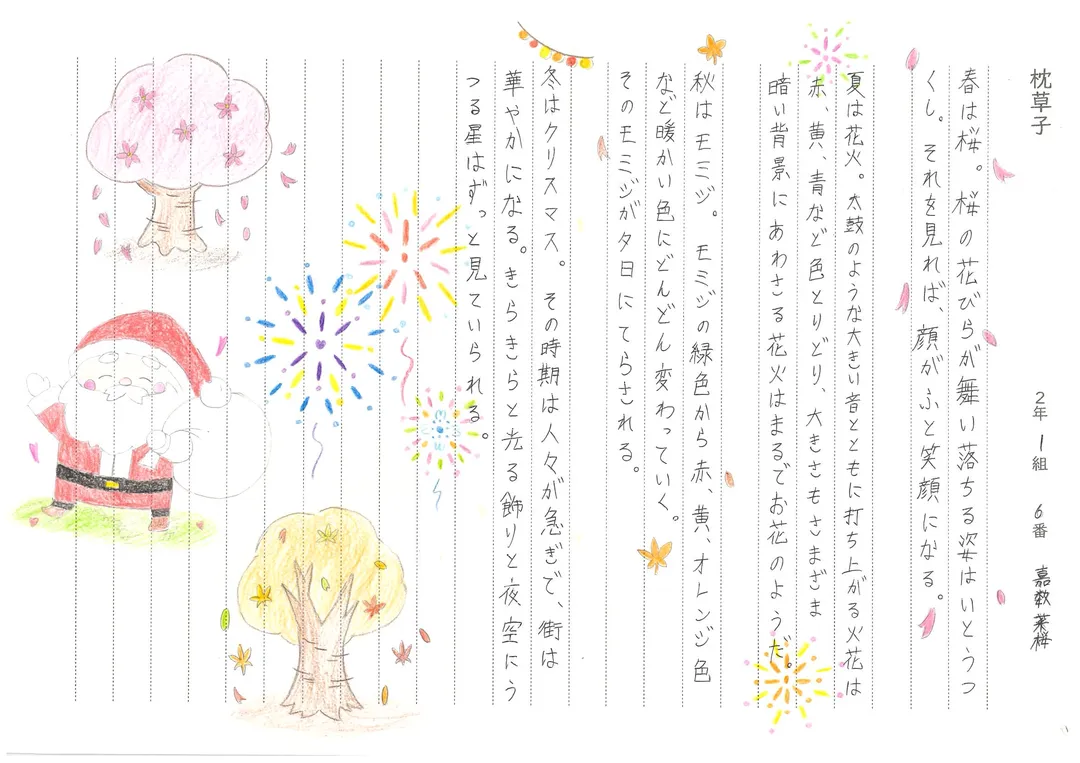 枕草子
2年 1組 6番 嘉数菜桜
春は桜。桜の花びらが舞い落ちる姿はいとうつ
くし。それを見れば、顔がふと笑顔になる。
夏は花火。太鼓のような大きい音とともに打ち上がる火花は
赤、黄、青など色とりどり、大きさもさまざま
暗い背景にあわさる花火はまるでお花のようだ。
秋はモミジ。モミジの緑色から赤、黄、オレンジ色
など暖かい色にどんどん変わっていく。
そのモミジが夕日にてらされる。
冬はクリスマス。その時期は人々が急ぎで、街は
華やかになる。きらきらと光る飾りと夜空にう
つる星はずっと見ていられる。